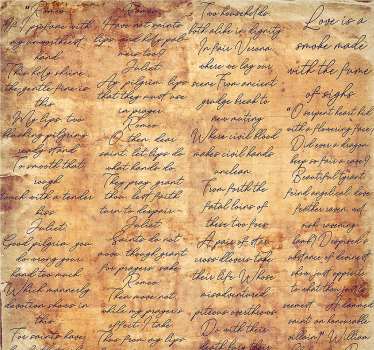 "Romeo
If I profane with
my unworthiest
hand
This holy shrine
the gentle fine is
this
My lips two
blushing pilgrims
ready stand
To smooth that
rough
touch with a tender
kiss
Juliet:
Good pilgrim you
do wrong your
hand too much
Which mannerly
devotion shows in
this
For saints have
Romeo
Have not saints
lips and holy pal
mers too?
Juliet
Ay pilgrim lips
that they must use
in prayer
Romeo
O then dear
saint let lips do
what hands do
They pray grant
thou lest faith
turn to despair
Juliet
Saints do not
move though grant
for prayers sake
Romeo
Then move not
while my prayers
effect I take
Thus from my lips
Two households
both alike in dignity
In fair Verona
where we lay our
scene From ancient
grudge break to
new mutiny
Where civil blood
makes civil hands
unclean
From forth the
fatal loins of
these two foes
A pair of star
cross'd lovers take
their life Whose
misadventured
piteous overthrows
Do with their
death bury their
Love is a
smoke made
with the fume
of sighs
"O serpent heart hid
with a flowering face!
Did ever a dragon
keep so fair a cave?
Beautiful tyrant
fiend angelical dove
feather raven wol
vish ravening
lamb! Despised s
ubstance of divinest
show just opposite
to what thou justly
seemest A damned
saint an honourable
villain!" William